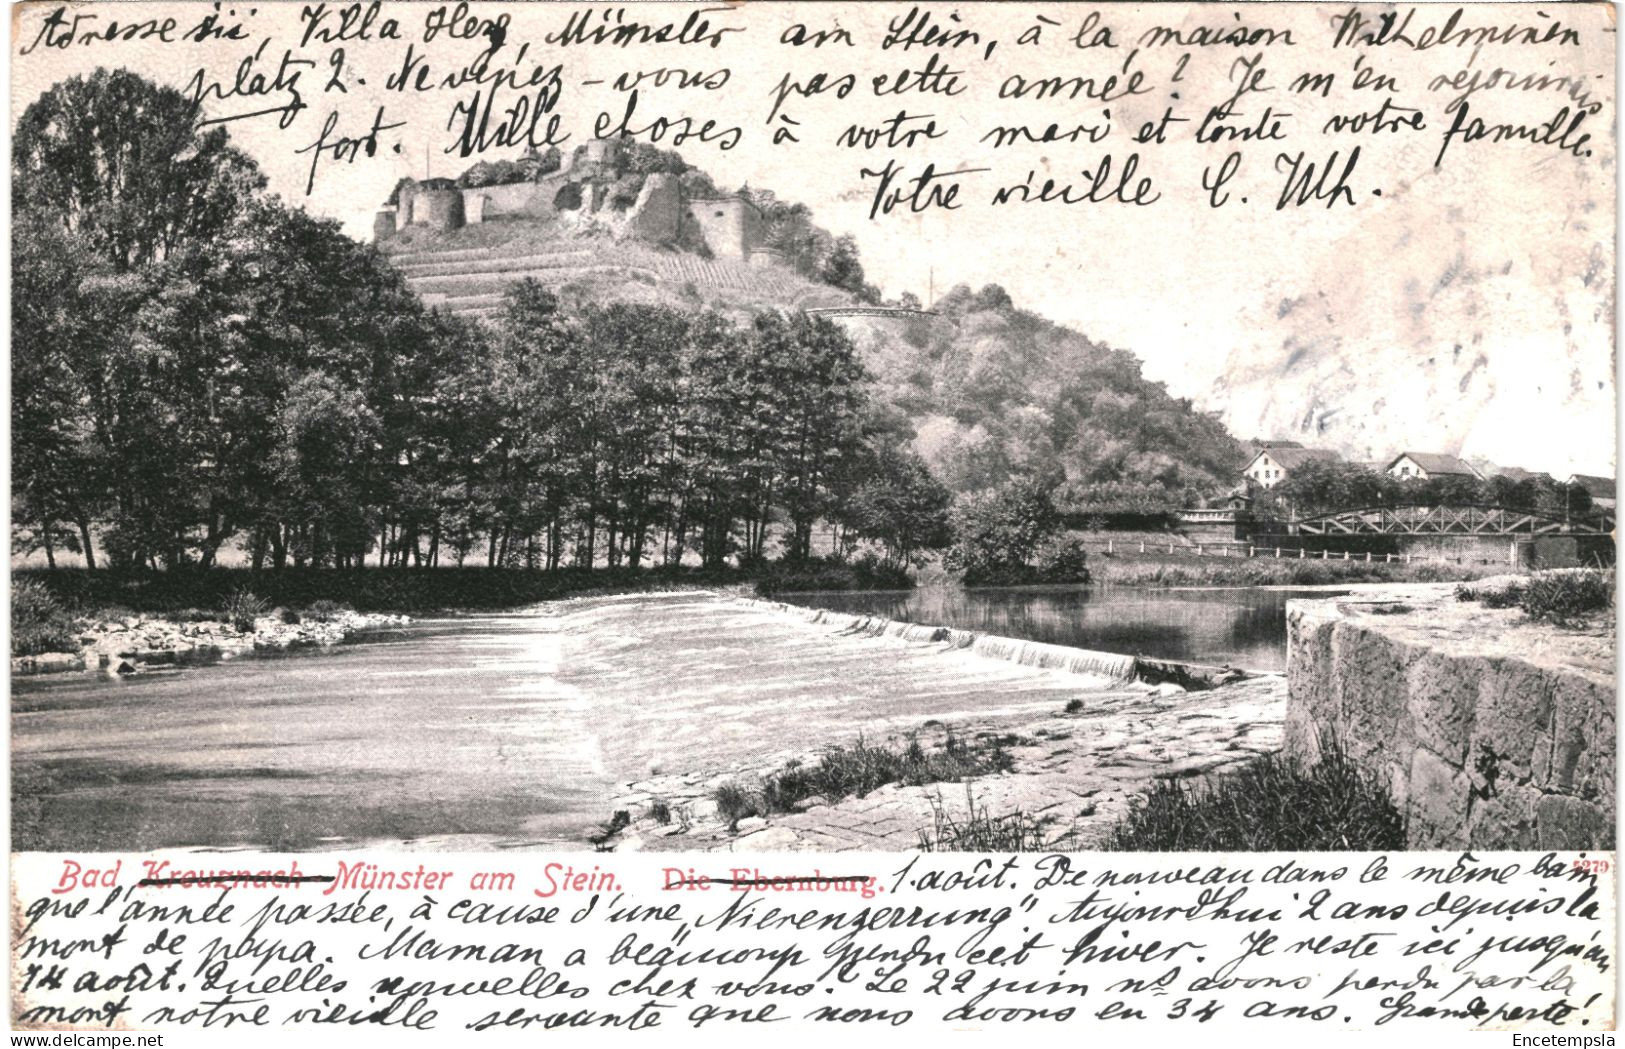 Adresse ici, Villa Herz, Münster am Stein, à la maison Wilhelminen-
platz 2. Ne venez-vous pas cette année? Je m'en réjouirais
fort. Mille choses à votre mari et toute votre famille.
Votre vieille C. Mh.
Bad Kreuznach-Münster am Stein. Die Ebernburg. 5279
1. août. De nouveau dans le même bain
que l'année passée, à cause d'une „Nierenzerrung". Aujourd'hui 2 ans depuis la
mort de papa. Maman a beaucoup perdu cet hiver. Je reste ici jusqu'au
14 août. Quelles nouvelles chez vous? Le 22 juin ns avons perdu par la
mort notre vieille servante que nous avons eu 34 ans. Grande perte!
Encetempsla